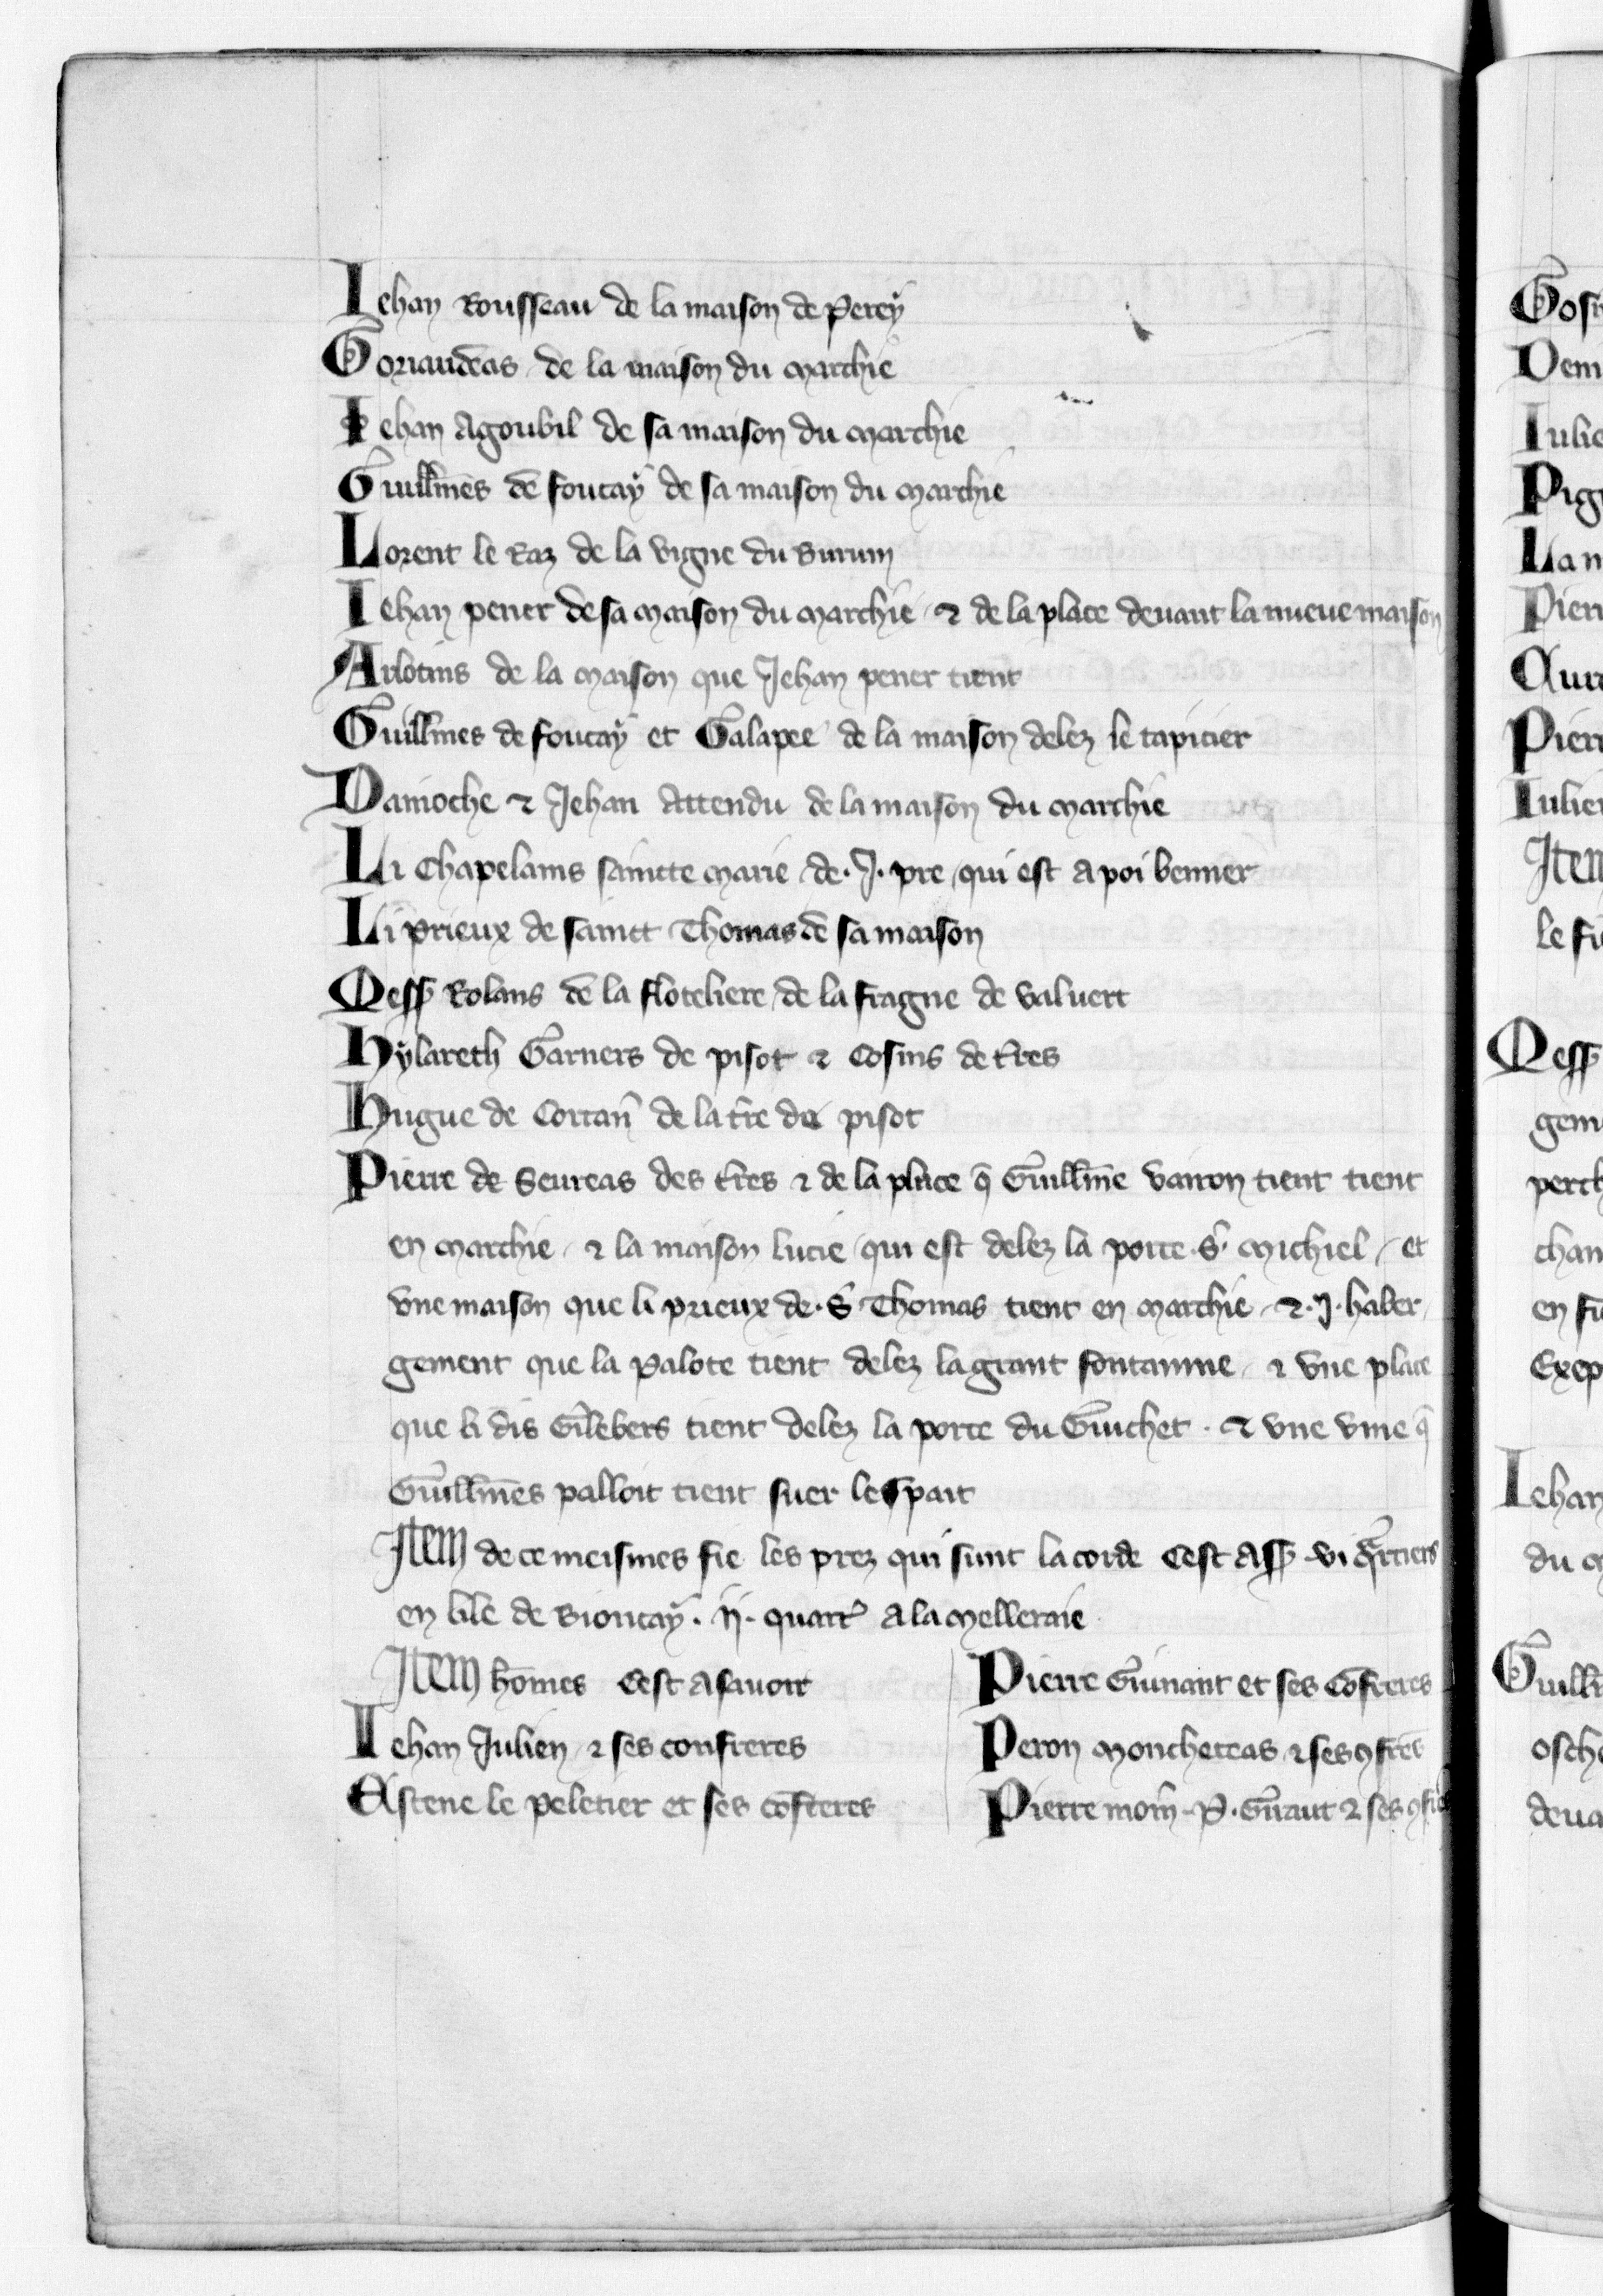 Iehan Rousseau de la maison de Percy
Goriaudeas de la maison du marchie
Iehan Agoubil de sa maison du marchie
Guillmes de foucay de sa maison du marchie
Lorent le Raz de la vigne du Burum
Iehan pener de sa maison du marchie & de la place devant la nueve maison
Arlotins de la maison que Jehan pener tient
Guillmes de foucay et Galapee de la maison delez le tapicier
Damoche & Jehan Attendu de la maison du marchie
Li Chapelains saincte marie de .I. pre qui est a poi benner
Li prieux de sainct Thomas de sa maison
Mess Rolans de la floteliere de la fragne de valuert
Hylareth Garners de pisot & Cosins de tres
Hugue de Cortan de la tre de pisot
Pierre de Seureas des tres & de la place q Guillme vairon tient tient
en marchie & la maison lucie qui est delez la porte S michiel et
vne maison que li prieux de S Thomas tient en marchie & .I. haber
gement que la Palote tient delez la grant fontainne & vne place
que li dis Gilebers tient delez la porte du Guichet & vne vine q
Guillmes palloit tient suer lespait
Item de ce meismes fie les prez qui sunt la corde Cest Ass vi qrtiers
en lile de Bioucay . ij . quart a la melleraie
Item homes Cest asavoir
Iehan Julien & ses confreres
Estene le peletier et ses cofreres
Pierre Guinant et ses Cofreres
Peron moncheteas & ses ꝯfres
Pierre morin P. Guraut & ses
Iulie
Pierr
Pierr
Iulien
Item
le fi
Mess
perch
cham
en fi
Exep
Iehan
du
Guill
osche
deua